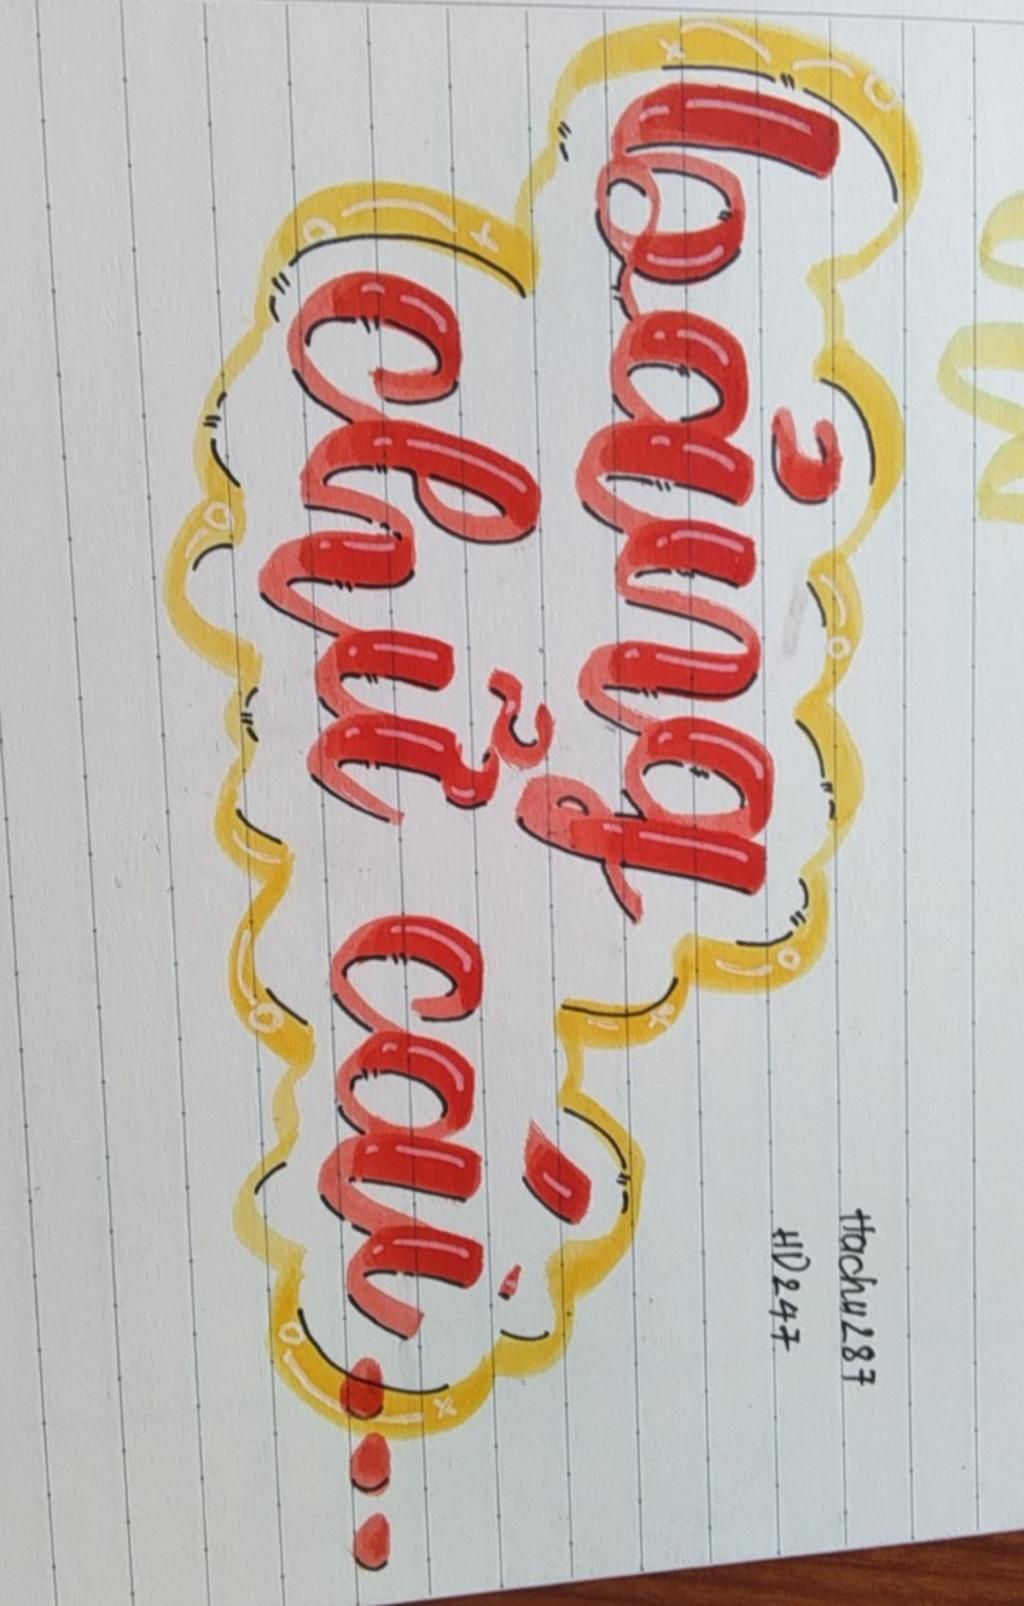 Hachu287
HD247
bảng
chữ cái...